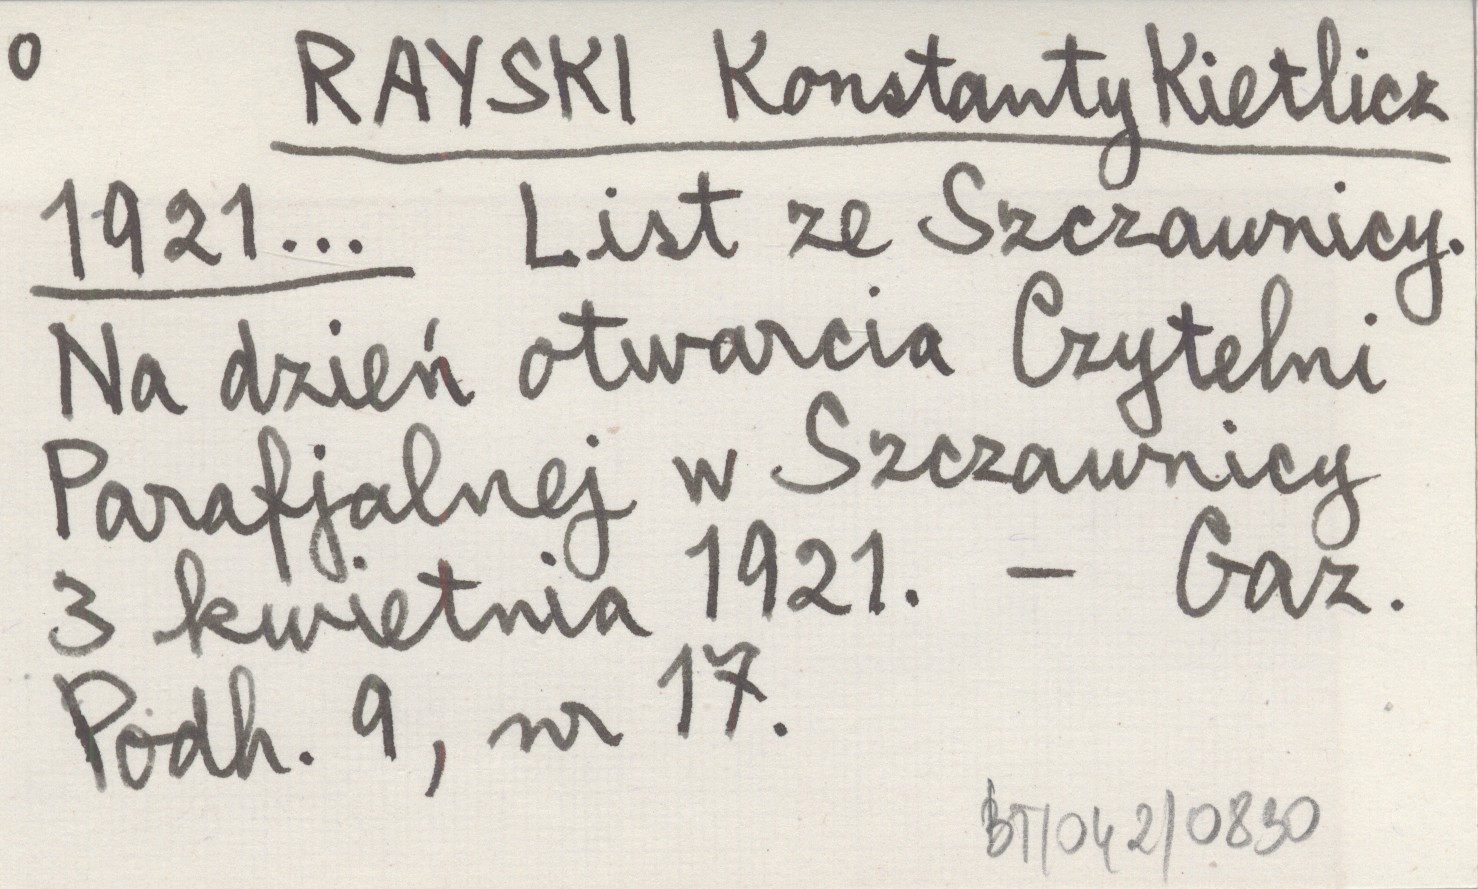 o RAYSKI Konstanty Kietlicz
1921... List ze Szczawnicy.
Na dzień otwarcia Czytelni
Parafjalnej w Szczawnicy
3 kwietnia 1921. – Gaz.
Podh. 9, nr 17.
BT/042/0830